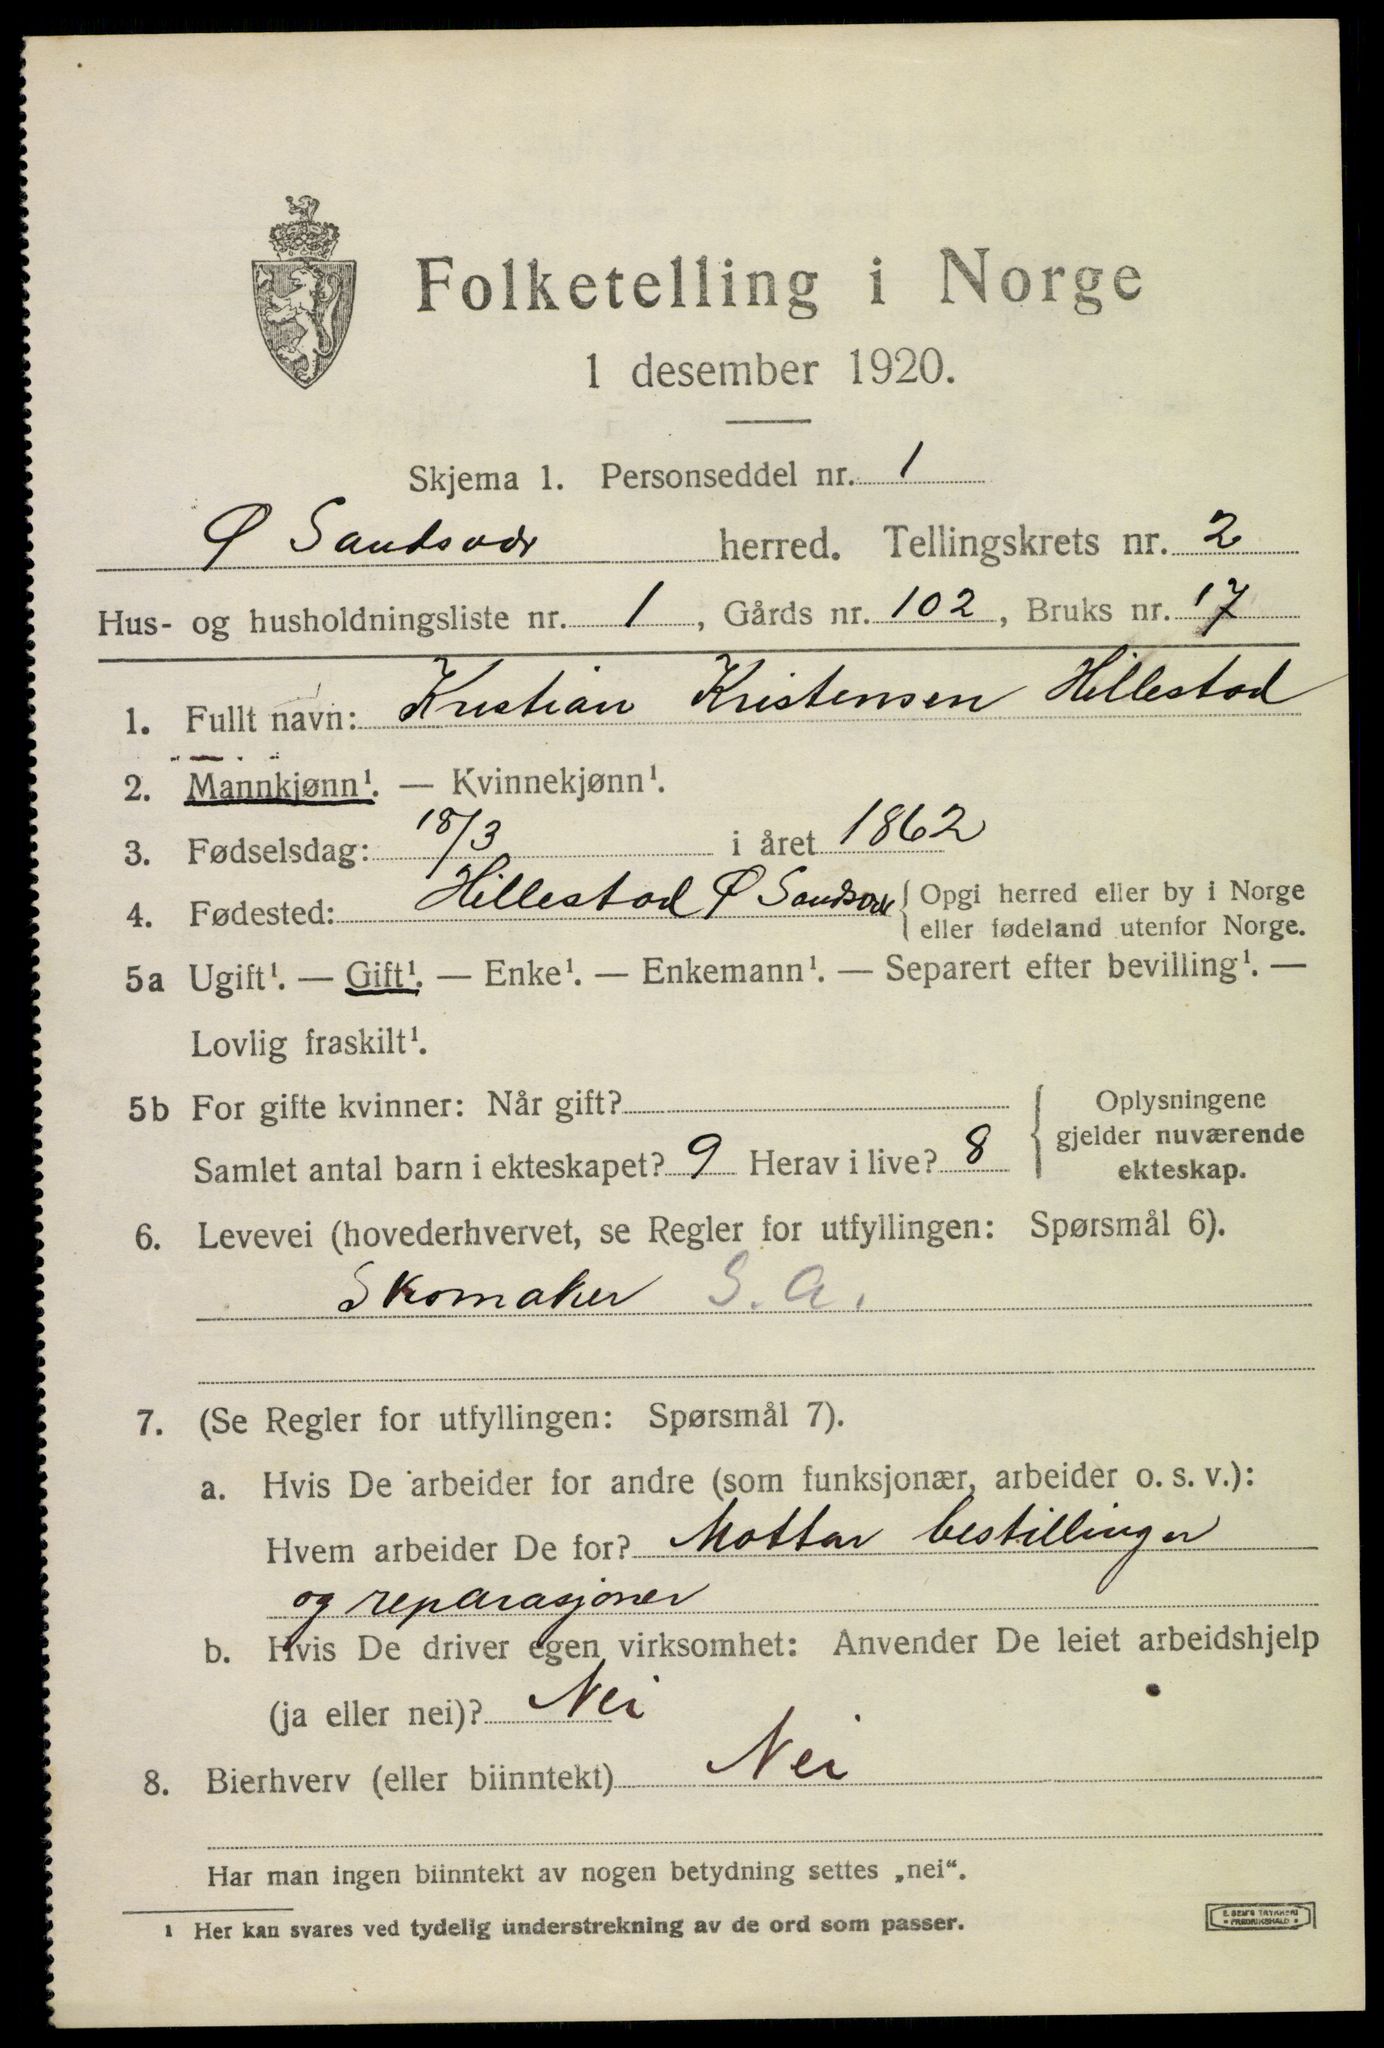 Folketelling i Norge
1 desember 1920.
Skjema 1. Personseddel nr. 1
Ø Sandsvær herred. Tellingskrets nr. 2
Hus- og husholdningsliste nr. 1, Gårds nr. 102, Bruks nr. 17
1. Fullt navn: Kristian Kristensen Hillestad
2. Mannkjønn¹. — Kvinnekjønn¹.
3. Fødselsdag: 18/3 i året 1862
4. Fødested: Hillestad Ø Sandsvær { Opgi herred eller by i Norge
eller fødeland utenfor Norge.
5a Ugift¹. — Gift¹. — Enke¹. — Enkemann¹. — Separert efter bevilling¹. —
Lovlig fraskilt¹.
5b For gifte kvinner: Når gift?
Samlet antal barn i ekteskapet? 9 Herav i live? 8
{ Oplysningene
gjelder nuværende
ekteskap.
6. Levevei (hovederhvervet, se Regler for utfyllingen: Spørsmål 6).
Skomaker S. A.
7. (Se Regler for utfyllingen: Spørsmål 7).
a. Hvis De arbeider for andre (som funksjonær, arbeider o. s. v.):
Hvem arbeider De for? Mottar bestillinger
og reparasjoner
b. Hvis De driver egen virksomhet: Anvender De leiet arbeidshjelp
(ja eller nei)? Nei
8. Bierhverv (eller biinntekt) Nei
Har man ingen biinntekt av nogen betydning settes „nei“.
¹ Her kan svares ved tydelig understrekning av de ord som passer.
E. SEM'S TRYKKERI
• FREDRIKSHALD •